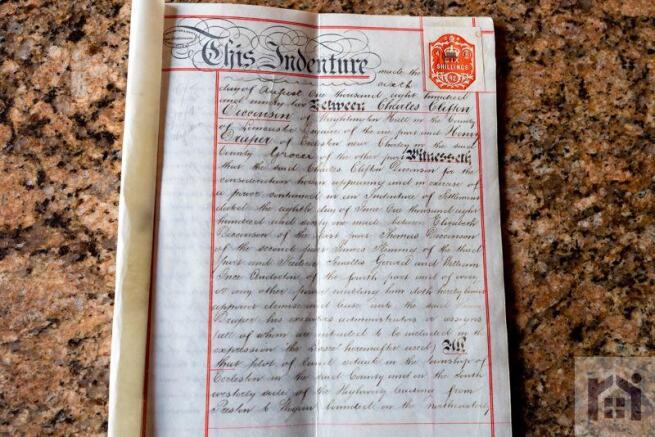 This Indenture made the sixth
SIX
SHILLINGS
day of August One thousand eight hundred
and ninety two Between Charles Clifton
Dicconson of Wrightington Hall in the County
of Lancaster Esquire of the one part and Henry
Draper of Eccleston near Chorley in the said
County Grocer of the other part Witnesseth
that the said Charles Clifton Dicconson for the
consideration herein appearing and in exercise of
a power contained in an Indenture of Settlement
dated the eighth day of June One thousand eight
hundred and sixty one made between Elizabeth
Dicconson of the first part Thomas Dicconson
of the second part James of the third
part and Frederic Gerard and William
of the fourth part and of every
or any other power enabling him doth hereby
appoint demise and lease unto the said
Draper his executors administrators or assigns
(all of whom are intended to be included in the
expression "the Lessee" hereinafter used) All
that plot of land situate in the Township of
Eccleston in the said County and on the South
westerly side of the Highway leading from
Preston to Wigan bounded on the